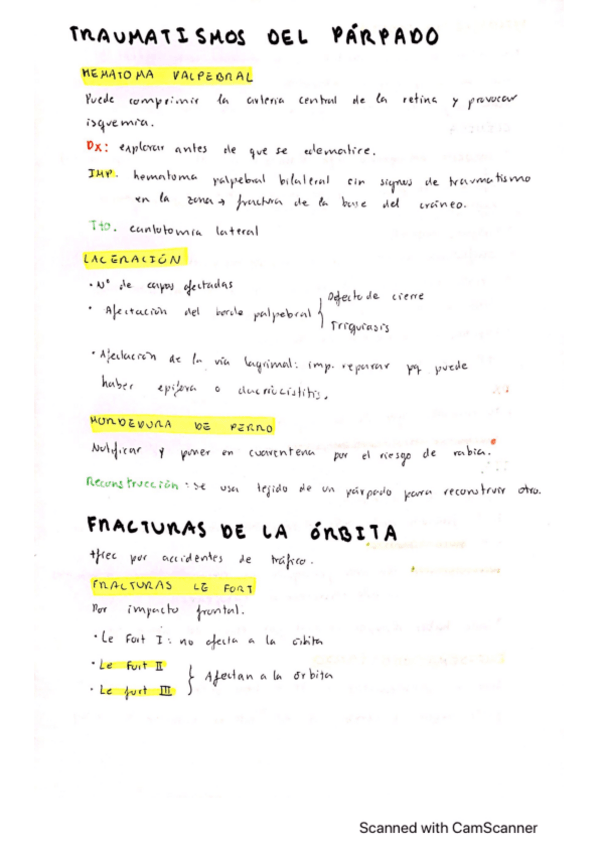 TRAUMATISMOS DEL PÁRPADO
HEMATOMA PALPEBRAL
Puede comprimir la arteria central de la retina y provocar
isquemia.
Dx: explorar antes de que se edematice.
IMP. hematoma palpebral bilateral sin signos de traumatismo
en la zona → fractura de la base del cráneo.
Tto. cantotomía lateral
LACERACIÓN
· Nº de capas afectadas
· Afectación del borde palpebral { Defecto de cierre
Triquiasis
· Afectación de la vía lagrimal: imp. reparar pq puede
haber epífora o dacriocistitis.
MORDEDURA DE PERRO
Notificar y poner en cuarentena por el riesgo de rabia.
Reconstrucción: se usa tejido de un párpado para reconstruir otro.
FRACTURAS DE LA ÓRBITA
+frec por accidentes de tráfico.
FRACTURAS LE FORT
Por impacto frontal.
· Le Fort I: no afecta a la órbita
· Le Fort II
· Le fort III } Afectan a la órbita
Scanned with CamScanner